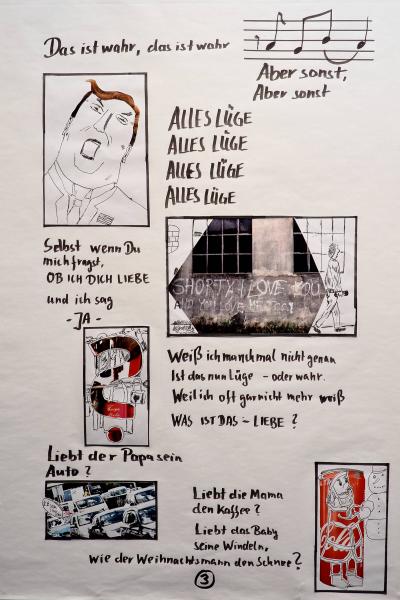 Das ist wahr, das ist wahr
Aber sonst,
Aber sonst
ALLES LÜGE
ALLES LÜGE
ALLES LÜGE
ALLES LÜGE
Selbst wenn Du
mich fragst,
OB ICH DICH LIEBE
und ich sag
- JA -
SHORTY, I LOVE YOU
Weiß ich manchmal nicht genau
Ist das nun Lüge - oder wahr.
Weil ich oft gar nicht mehr weiß
WAS IST DAS - LIEBE ?
Liebt der Papa sein
Auto ?
Liebt die Mama
den Kaffee ?
Liebt das Baby
seine Windeln,
wie der Weihnachtsmann den Schnee ?
3